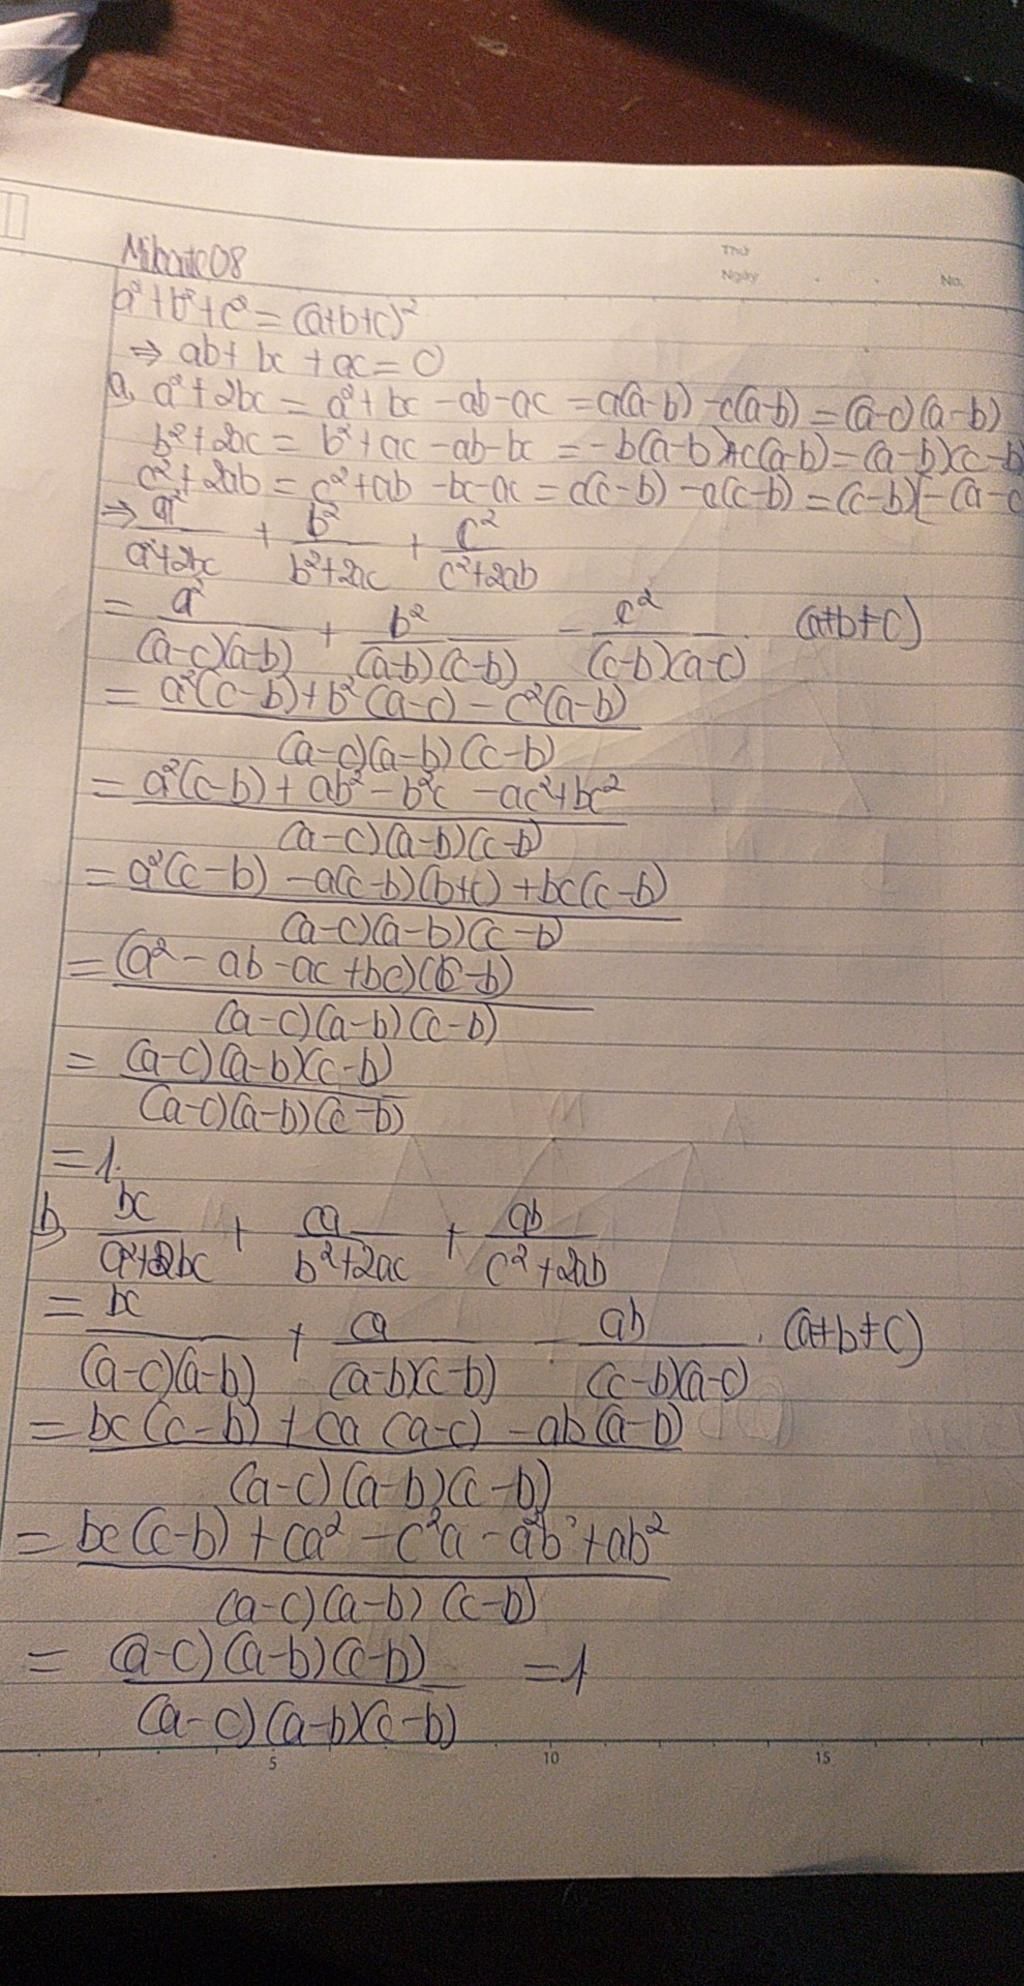 Thứ
Ngày . . No.
a²+b²+c²=(a+b+c)²
⇒ ab+bc+ac=0
a, a²+2bc = a²+bc-ab-ac = a(a-b)-c(a-b)=(a-c)(a-b)
b²+2ac = b²+ac-ab-bc = -b(a-b)+c(a-b)=(a-b)(c-b)
c²+2ab = c²+ab-bc-ac = c(c-b)-a(c-b)=(c-b)[-(a-c
⇒ a²/(a²+2bc) + b²/(b²+2ac) + c²/(c²+2ab)
= a²/((a-c)(a-b)) + b²/((a-b)(c-b)) - c²/((c-b)(a-c)) (a≠b≠c)
= (a²(c-b)+b²(a-c)-c²(a-b))/((a-c)(a-b)(c-b))
= (a²(c-b)+ab²-b²c-ac²+bc²)/((a-c)(a-b)(c-b))
= (a²(c-b)-a(c-b)(b+c)+bc(c-b))/((a-c)(a-b)(c-b))
= ((a²-ab-ac+bc)(c-b))/((a-c)(a-b)(c-b))
= ((a-c)(a-b)(c-b))/((a-c)(a-b)(c-b))
= 1.
b, bc/(a²+2bc) + ca/(b²+2ac) + ab/(c²+2ab)
= bc/((a-c)(a-b)) + ca/((a-b)(c-b)) - ab/((c-b)(a-c)). (a≠b≠c)
= (bc(c-b)+ca(a-c)-ab(a-b))/((a-c)(a-b)(c-b))
= (bc(c-b)+ca²-c²a-a²b+ab²)/((a-c)(a-b)(c-b))
= ((a-c)(a-b)(c-b))/((a-c)(a-b)(c-b)) = 1
5 10 15